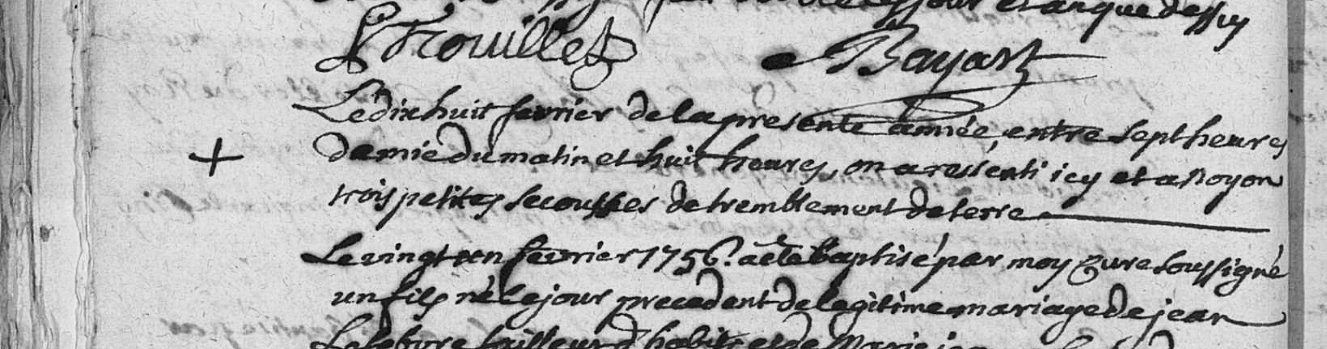 par jour et an que dessus
Trouillet Bayart
Le dix huit fevrier de la presente année, entre sept heures
+ demie du matin et huit heures, on a ressenti icy et a Noyon
trois petites secousses de tremblement de terre
Le vingt un fevrier 1756. a été baptisé par moy Curé soussigné
un fils né le jour precedent de legitime mariage de jean
Lefebvre tailleur d'habits et de Marie